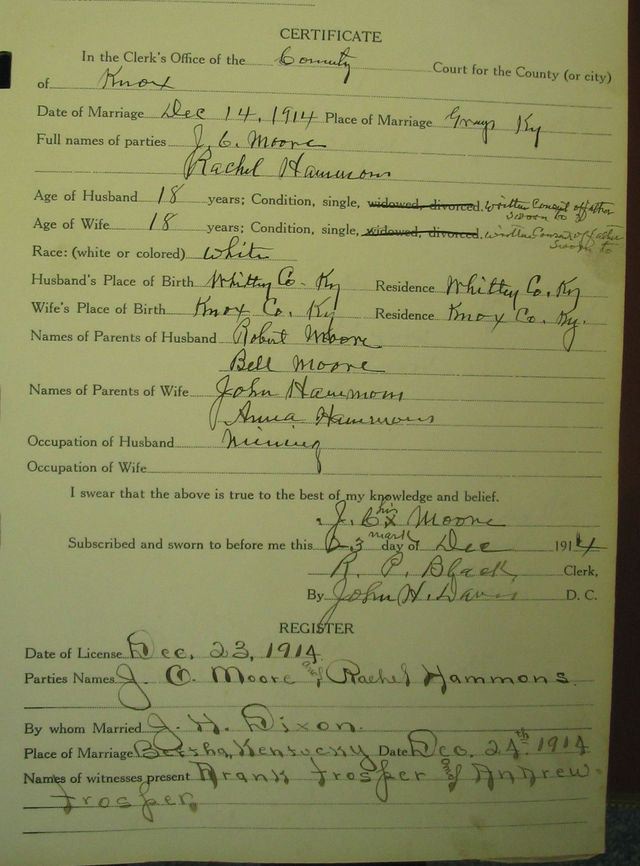 CERTIFICATE
In the Clerk's Office of the County Court for the County (or city)
of Knox
Date of Marriage Dec 14, 1914 Place of Marriage Grays Ky
Full names of parties J. C. Moore
Rachel Hammons
Age of Husband 18 years; Condition, single, widowed, divorced. written consent of father
sworn to
Age of Wife 18 years; Condition, single, widowed, divorced. written consent of father
sworn to
Race: (white or colored) white
Husband's Place of Birth Whitley Co. Ky Residence Whitley Co. Ky
Wife's Place of Birth Knox Co. Ky Residence Knox Co. Ky.
Names of Parents of Husband Robert Moore
Bell Moore
Names of Parents of Wife John Hammons
Anna Hammons
Occupation of Husband Mining
Occupation of Wife
I swear that the above is true to the best of my knowledge and belief.
his
J. C x Moore
mark
Subscribed and sworn to before me this 23 day of Dec 1914
R. P. Black, Clerk,
By John H. Davis D. C.
REGISTER
Date of License Dec. 23, 1914
Parties Names J. C. Moore and Rachel Hammons
By whom Married J. H. Dixon.
Place of Marriage Kentucky Date Dec. 24th 1914
Names of witnesses present Frank Trosper and Andrew
Trosper